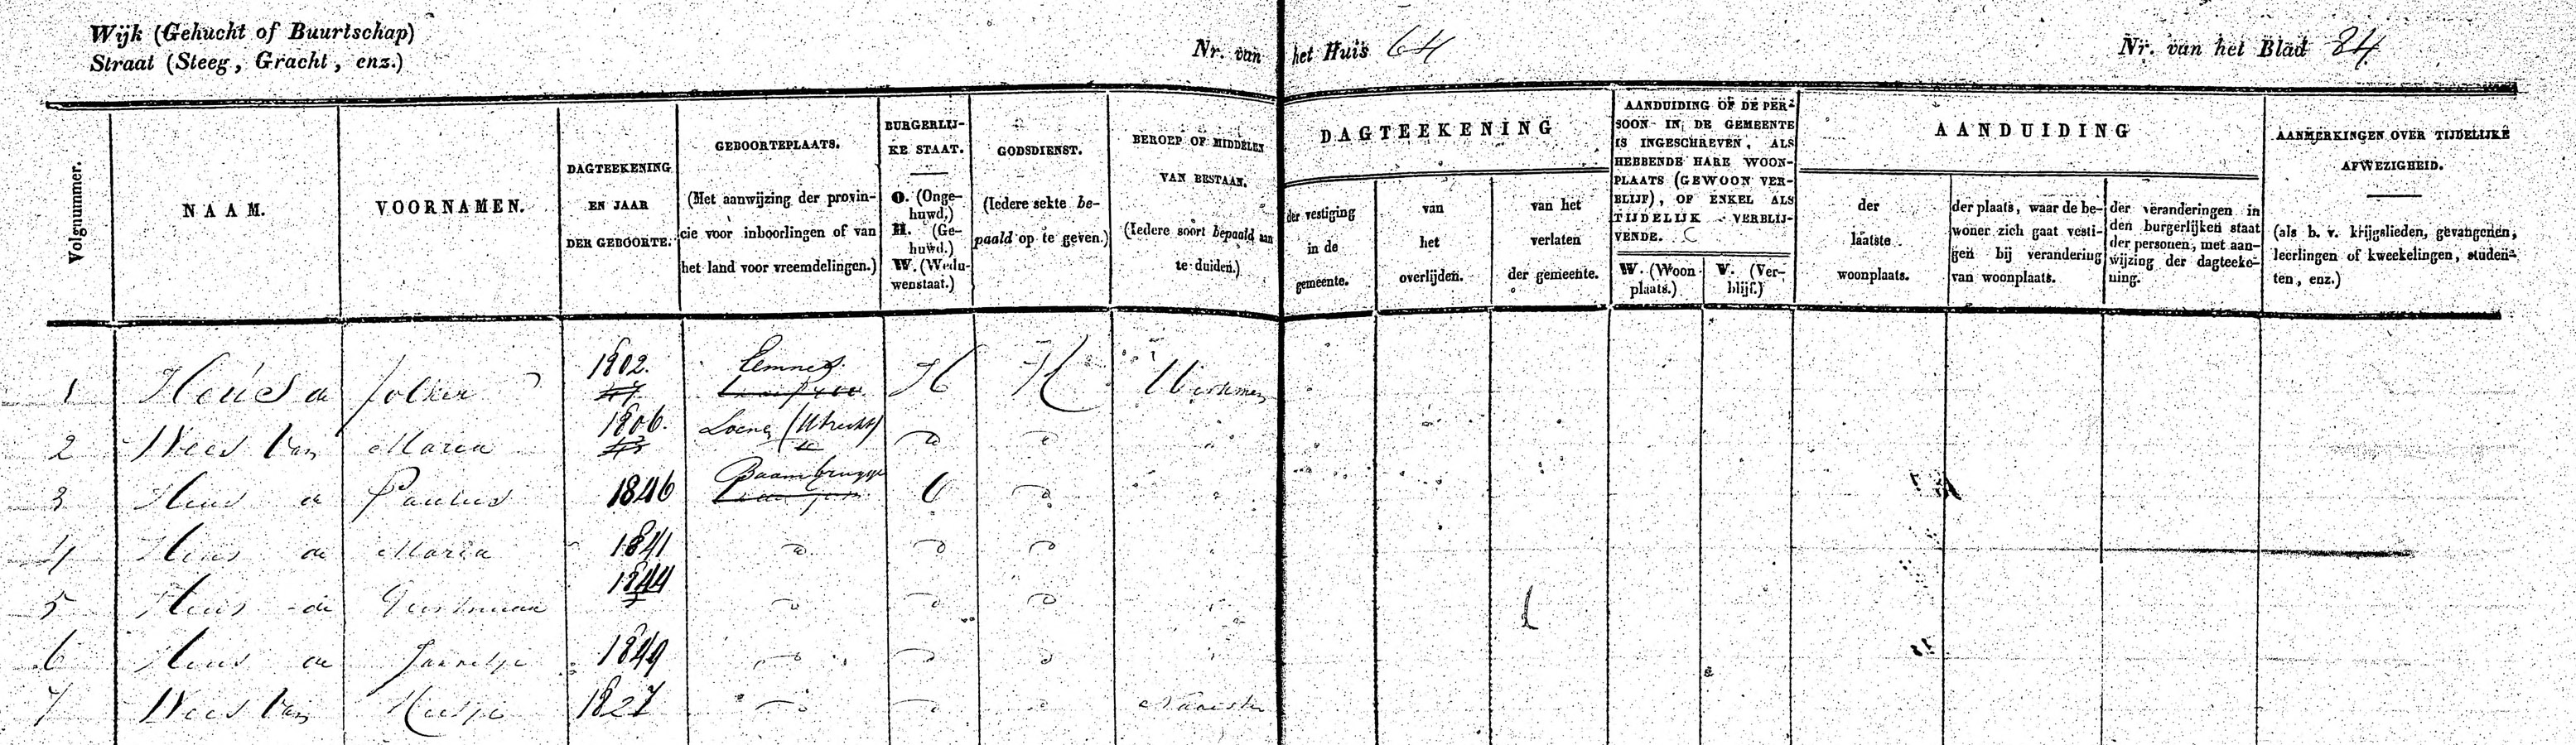 Wijk (Gehucht of Buurtschap)
Straat (Steeg, Gracht, enz.)
Nr. van het Huis 64
Nr. van het Blad 84
Volgnummer.
NAAM.
VOORNAMEN.
DAGTEEKENING
EN JAAR
DER GEBOORTE.
GEBOORTEPLAATS.
(Met aanwijzing der provin-
cie voor inboorlingen of van
het land voor vreemdelingen.)
BURGERLIJ-
KE STAAT.
O. (Onge-
huwd.)
H. (Ge-
huwd.)
W. (Wedu-
wenstaat.)
GODSDIENST.
(Iedere sekte be-
paald op te geven.)
BEROEP OF MIDDELEN
VAN BESTAAN.
(Iedere soort bepaald aan
te duiden.)
DAGTEEKENING
der vestiging
in de
gemeente.
van
het
overlijden.
van het
verlaten
der gemeente.
AANDUIDING OF DE PER-
SOON IN DE GEMEENTE
IS INGESCHREVEN, ALS
HEBBENDE HARE WOON-
PLAATS (GEWOON VER-
BLIJF), OF ENKEL ALS
TIJDELIJK VERBLIJ-
VENDE.
W. (Woon
plaats.)
V. (Ver-
blijf.)
AANDUIDING
der
laatste
woonplaats.
der plaats, waar de be-
woner zich gaat vesti-
gen bij verandering
van woonplaats.
der veranderingen in
den burgerlijken staat
der personen, met aan-
wijzing der dagteeke-
ning.
AANMERKINGEN OVER TIJDELIJKE
AFWEZIGHEID.
(als b. v. krijgslieden, gevangenen,
leerlingen of kweekelingen, studen-
ten, enz.)
1 Heus de Folker 1802. Eemnes H H Werkman
2 Wees Van Maria 1806. Loenen (Utrecht)
3 Heus de Paulus 1846 Baambrugge O
4 Heus de Maria 1841
5 Heus de 1844
6 Heus de Jannetje 1849
7 Wees Van 1827 Naaister